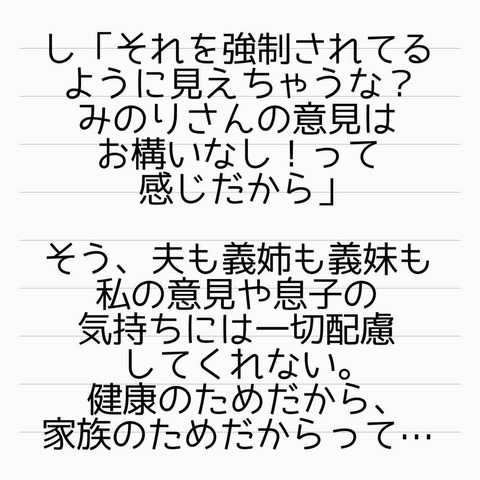 し「それを強制されてる
ように見えちゃうな？
みのりさんの意見は
お構いなし！って
感じだから」
そう、夫も義姉も義妹も
私の意見や息子の
気持ちには一切配慮
してくれない。
健康のためだから、
家族のためだからって…